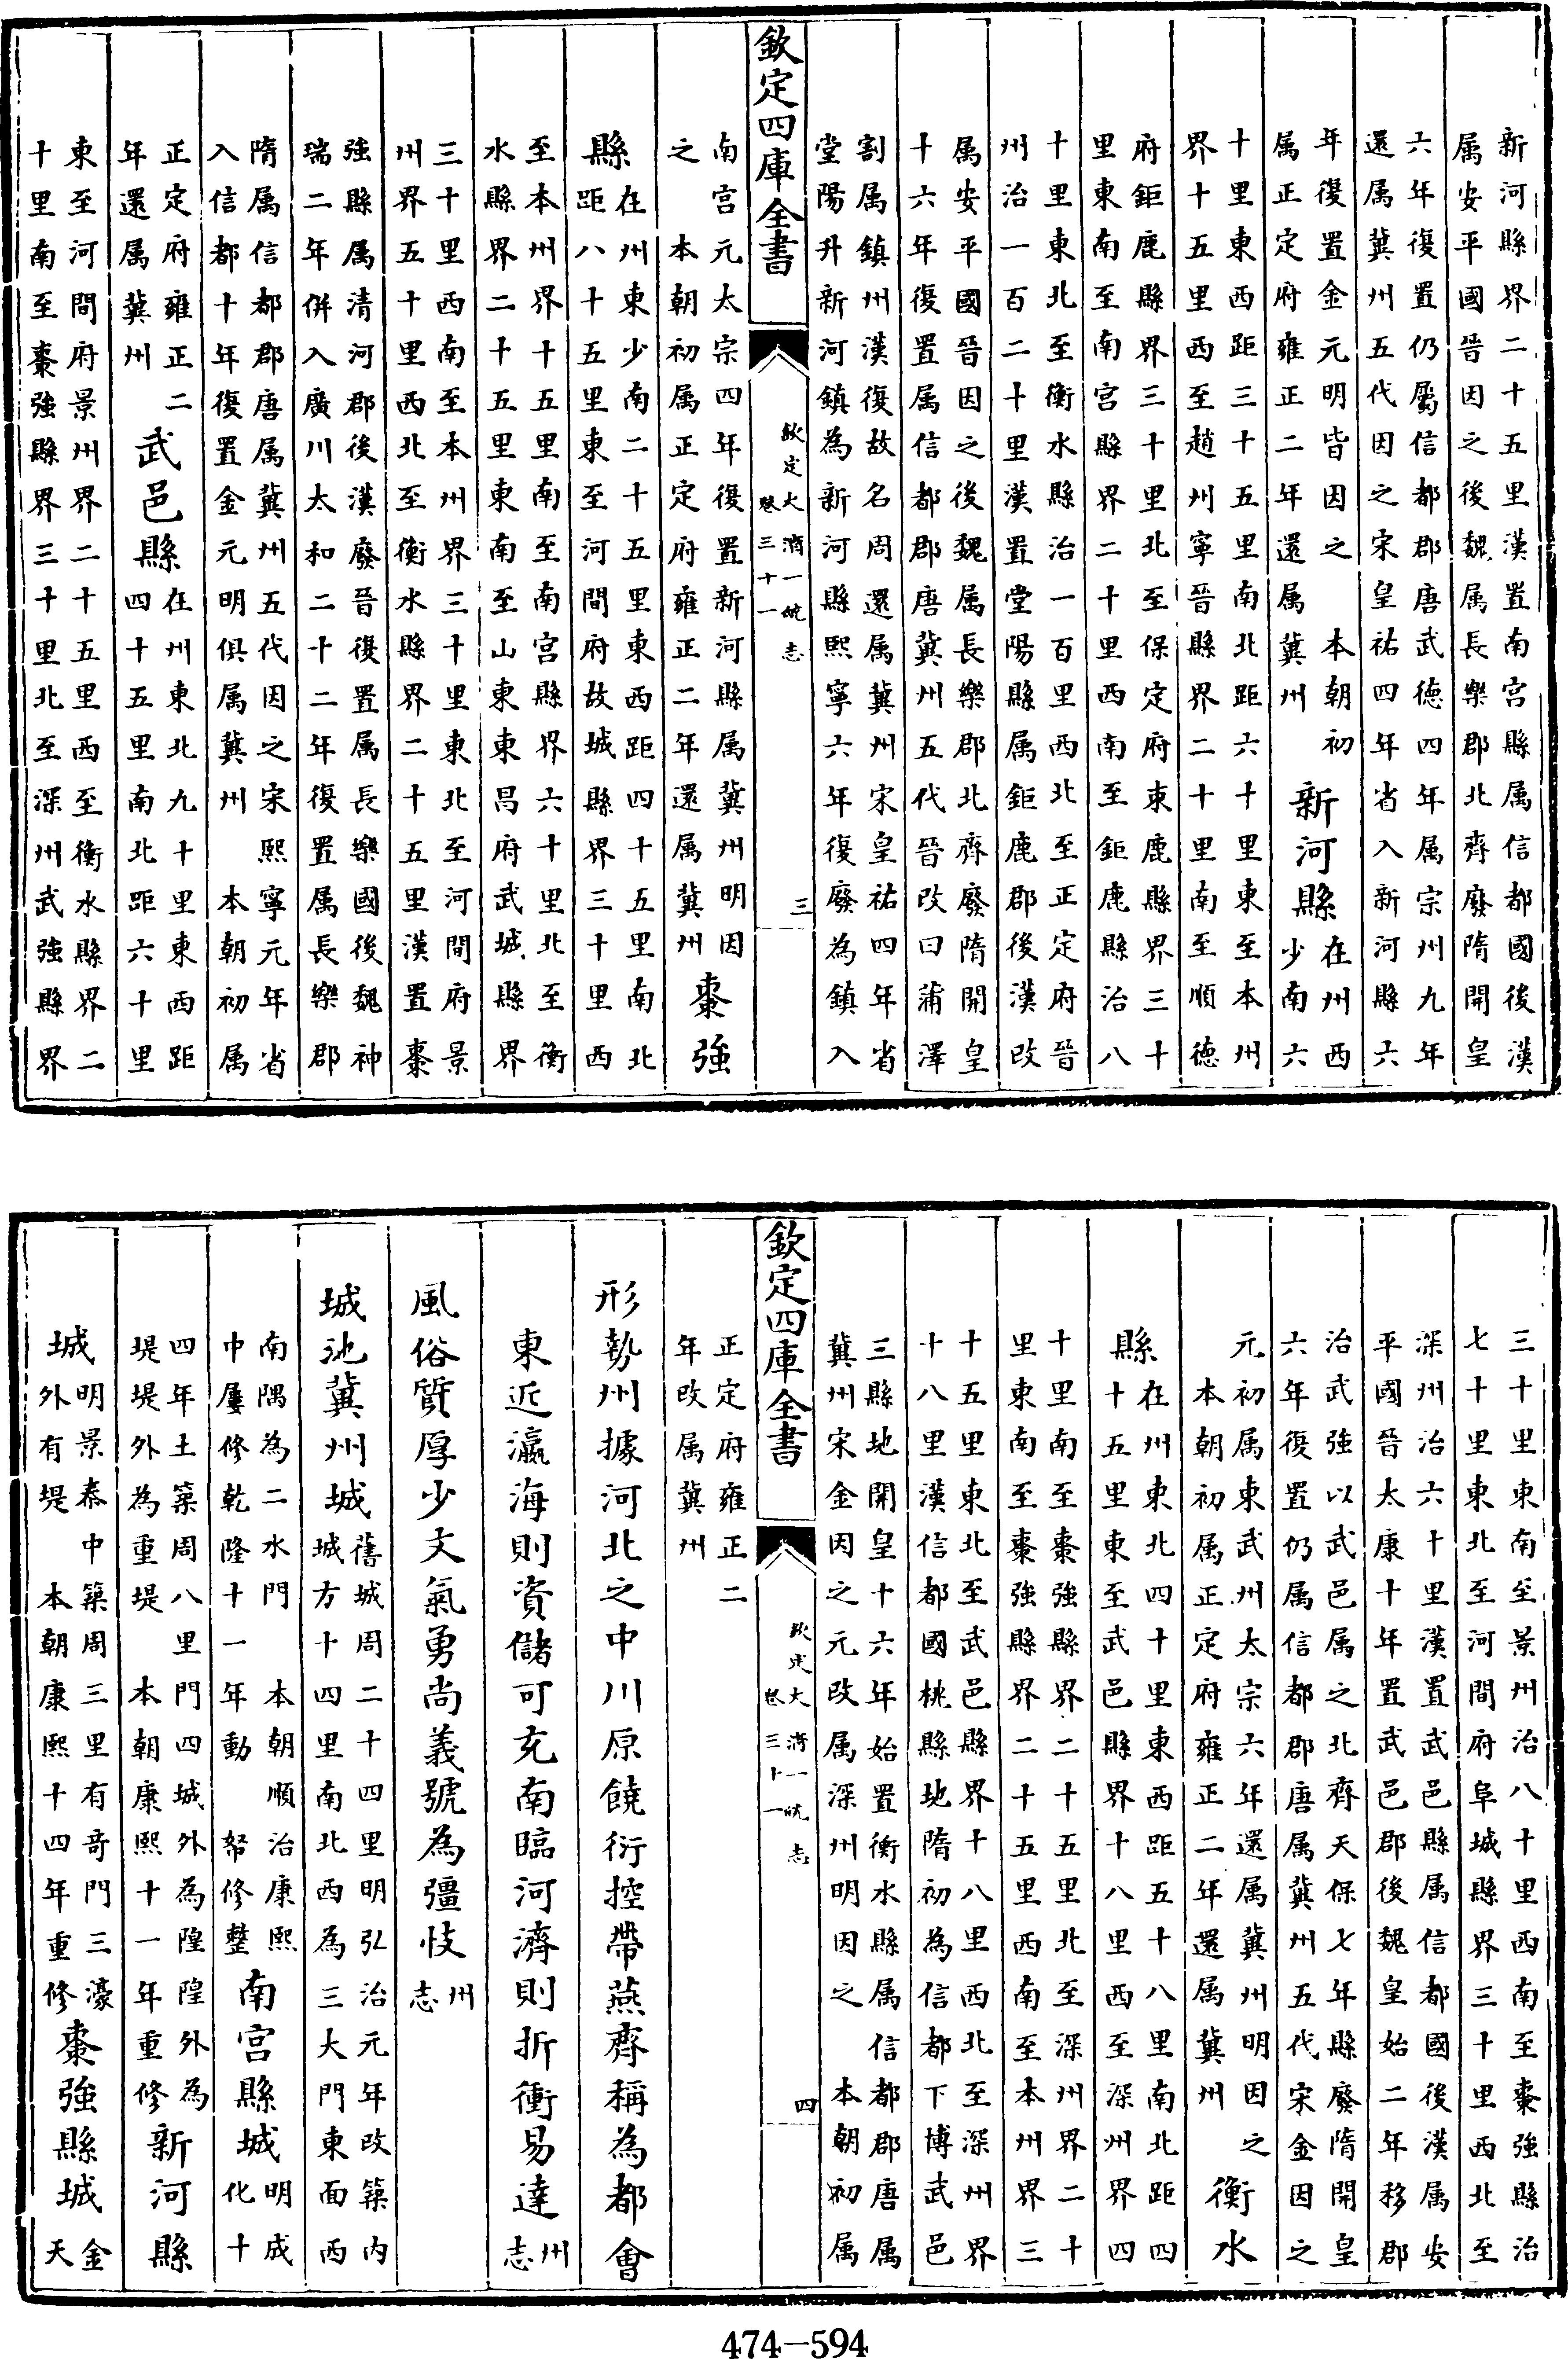 新河縣界二十五里漢置南宮縣属信都國後漢
属安平國晉因之後魏属長樂郡北齊廢隋開皇
六年復置仍屬信都郡唐武德四年属宗州九年
還属冀州五代因之宋皇祐四年省入新河縣六
年復置金元明皆因之 本朝初
属正定府雍正二年還属冀州
新河縣
在州西
少南六
十里東西距三十五里南北距六十里東至本州
界十五里西至趙州寧晉縣界二十里南至順德
府鉅鹿縣界三十里北至保定府東鹿縣界三十
里東南至南宮縣界二十里西南至鉅鹿縣治八
十里東北至衡水縣治一百里西北至正定府晉
州治一百二十里漢置堂陽縣属鉅鹿郡後漢改
属安平國晉因之後魏属長樂郡北齊廢隋開皇
十六年復置属信都郡唐冀州五代晉改曰蒲澤
割属鎮州漢復故名周還属冀州宋皇祐四年省
堂陽升新河鎮為新河縣熙寧六年復廢為鎮入
欽定四庫全書
欽定大清一統志
卷三十一
三
南宮元太宗四年復置新河縣属冀州明因
之 本朝初属正定府雍正二年還属冀州
棗強
縣
在州東少南二十五里東西距四十五里南北
距八十五里東至河間府故城縣界三十里西
至本州界十五里南至南宮縣界六十里北至衡
水縣界二十五里東南至山東東昌府武城縣界
三十里西南至本州界三十里東北至河間府景
州界五十里西北至衡水縣界二十五里漢置棗
強縣属清河郡後漢廢晉復置属長樂國後魏神
瑞二年併入廣川太和二十二年復置属長樂郡
隋属信都郡唐属冀州五代因之宋熙寧元年省
入信都十年復置金元明俱属冀州 本朝初属
正定府雍正二
年還属冀州
武邑縣
在州東北九十里東西距
四十五里南北距六十里
東至河間府景州界二十五里西至衡水縣界二
十里南至棗強縣界三十里北至深州武強縣界
三十里東南至景州治八十里西南至棗強縣治
七十里東北至河間府阜城縣界三十里西北至
深州治六十里漢置武邑縣属信都國後漢属安
平國晉太康十年置武邑郡後魏皇始二年移郡
治武強以武邑属之北齊天保七年縣廢隋開皇
六年復置仍属信都郡唐属冀州五代宋金因之
元初属東武州太宗六年還属冀州明因之
本朝初属正定府雍正二年還属冀州
衡水
縣
在州東北四十里東西距五十八里南北距四
十五里東至武邑縣界十八里西至深州界四
十里南至棗強縣界二十五里北至深州界二十
里東南至棗強縣界二十五里西南至本州界三
十五里東北至武邑縣界十八里西北至深州界
十八里漢信都國桃縣地隋初為信都下博武邑
三縣地開皇十六年始置衡水縣属信都郡唐属
冀州宋金因之元改属深州明因之 本朝初属
欽定四庫全書
欽定大清一統志
卷三十一
四
正定府雍正二
年改属冀州
形勢州據河北之中川原饒衍控帶燕齊稱為都會
東近瀛海則資儲可充南臨河濟則折衝易達
州
志
風俗質厚少文氣勇尚義號為彊忮
州
志
城池冀州城
舊城周二十四里明弘治元年改築內
城方十四里南北西為三大門東面西
南隅為二水門 本朝順治康熙
中屢修乾隆十一年動帑修整
南宮縣城
明成
化十
四年土築周八里門四城外為隍隍外為
堤堤外為重堤 本朝康熙十一年重修
新河縣
城
明景泰中築周三里有奇門三濠
外有堤 本朝康熙十四年重修
棗強縣城
金
天
474-594